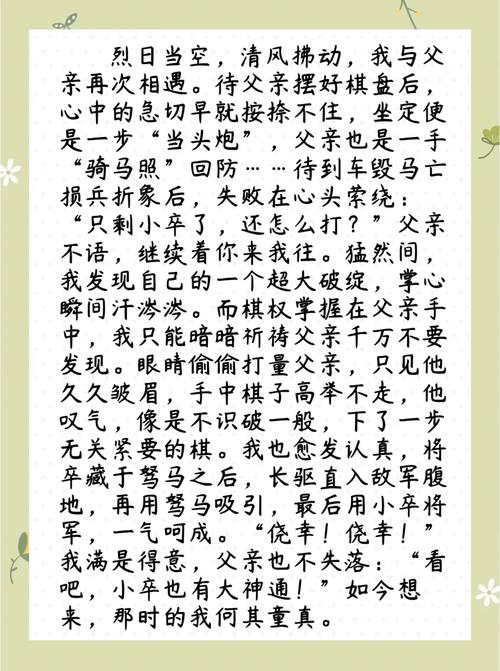 烈日当空，清风拂动，我与父
亲再次相遇。待父亲摆好棋盘后，
心中的急切早就按捺不住，坐定便
是一步“当头炮”，父亲也是一手
“骑马照”回防……待到车毁马亡
损兵折象后，失败在心头萦绕：
“只剩小卒了，还怎么打？”父亲
不语，继续着你来我往。猛然间，
我发现自己的一个超大破绽，掌心
瞬间汗涔涔。而棋权掌握在父亲手
中，我只能暗暗祈祷父亲千万不要
发现。眼睛偷偷打量父亲，只见他
久久皱眉，手中棋子高举不走，他
叹气，像是不识破一般，下了一步
无关紧要的棋。我也愈发认真，将
卒藏于驽马之后，长驱直入敌军腹
地，再用驽马吸引，最后用小卒将
军，一气呵成。“侥幸！侥幸！”
我满是得意，父亲也不失落：“看
吧，小卒也有大神通！”如今想
来，那时的我何其童真。